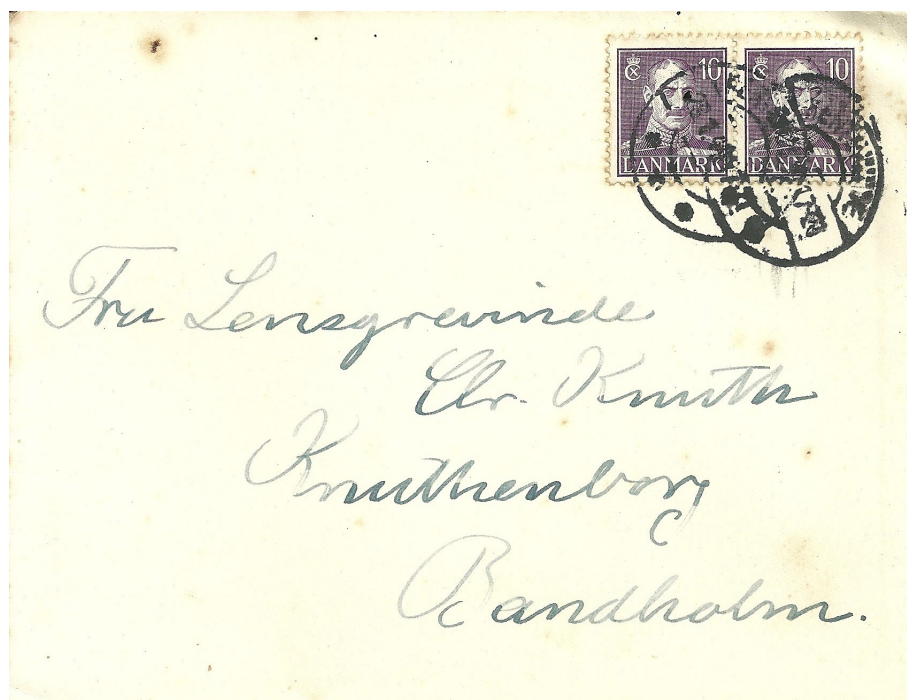 10 10
DANMARK DANMARK
Fru Lensgrevinde
Clr. Knuth
Knuthenborg
Bandholm.